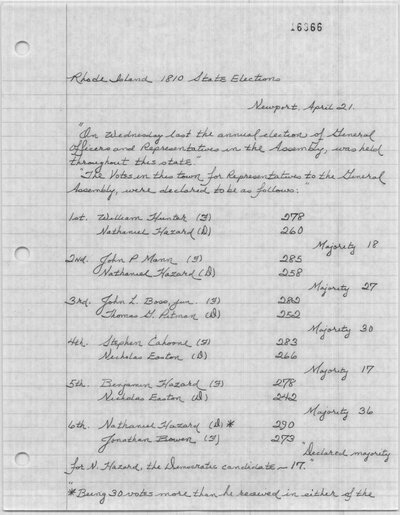 16066
Rhode Island 1810 State Elections
Newport, April 21.
"On Wednesday last the annual election of General
Officers and Representatives in the Assembly, was held
throughout this state."
"The Votes in this town, for Representatives to the General
Assembly, were declared to be as follows:"
1st. William Hunter (F) 278
Nathaniel Hazard (D) 260
Majority 18
2nd. John P Mann (F) 285
Nathaniel Hazard (D) 258
Majority 27
3rd. John L. Boss, jun. (F) 282
Thomas G. Pitman (D) 252
Majority 30
4th. Stephen Cahoone (F) 283
Nicholas Easton (D) 266
Majority 17
5th. Benjamin Hazard (F) 278
Nicholas Easton (D) 242
Majority 36
6th. Nathaniel Hazard (D) * 290
Jonathan Bowen (F) 273
"Declared majority
for N. Hazard, the Democratic candidate – 17."
"*Being 30 votes more than he received in either of the